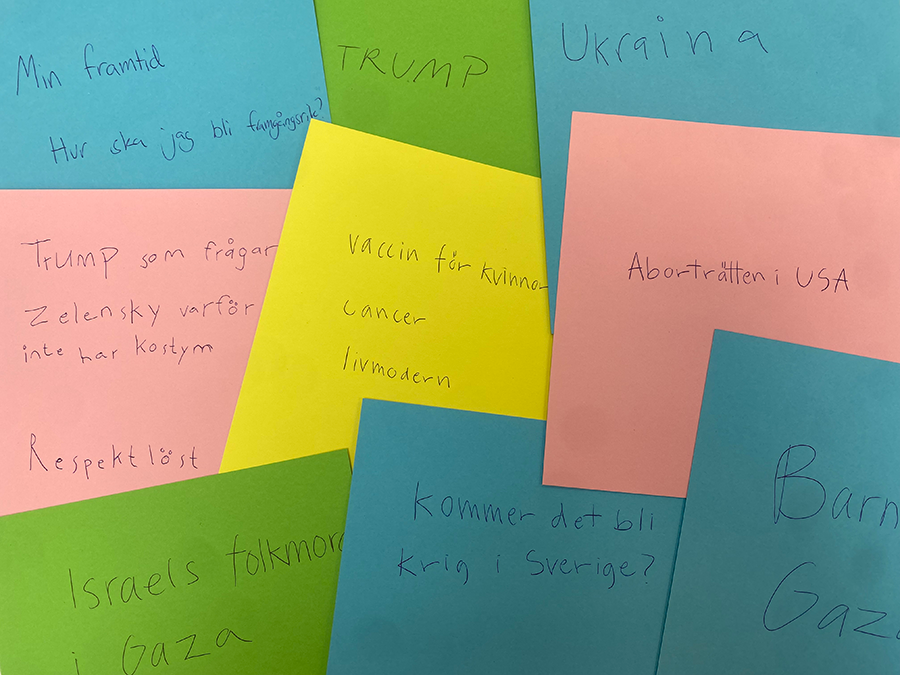 Min framtid
Hur ska jag bli framgångsrik?
TRUMP
Ukraina
TRUMP som frågar
Zelensky varför
inte har kostym
Respektlöst
vaccin för kvinnor
cancer
livmodern
Aborträtten i USA
Israels folkmord
i Gaza
kommer det bli
krig i Sverige?
Barn
Gaza